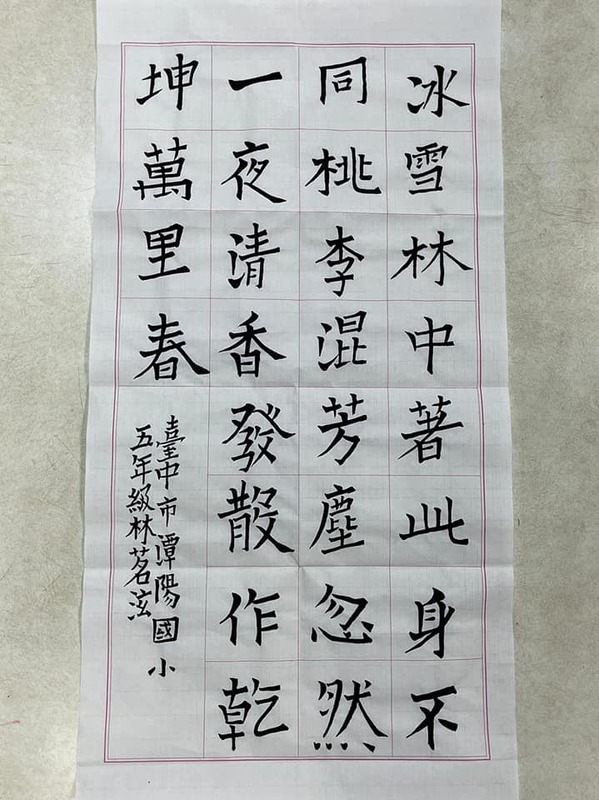 冰雪林中著此身不
同桃李混芳塵忽然
一夜清香發散作乾
坤萬里春
臺中市潭陽國小
五年級林茗泫